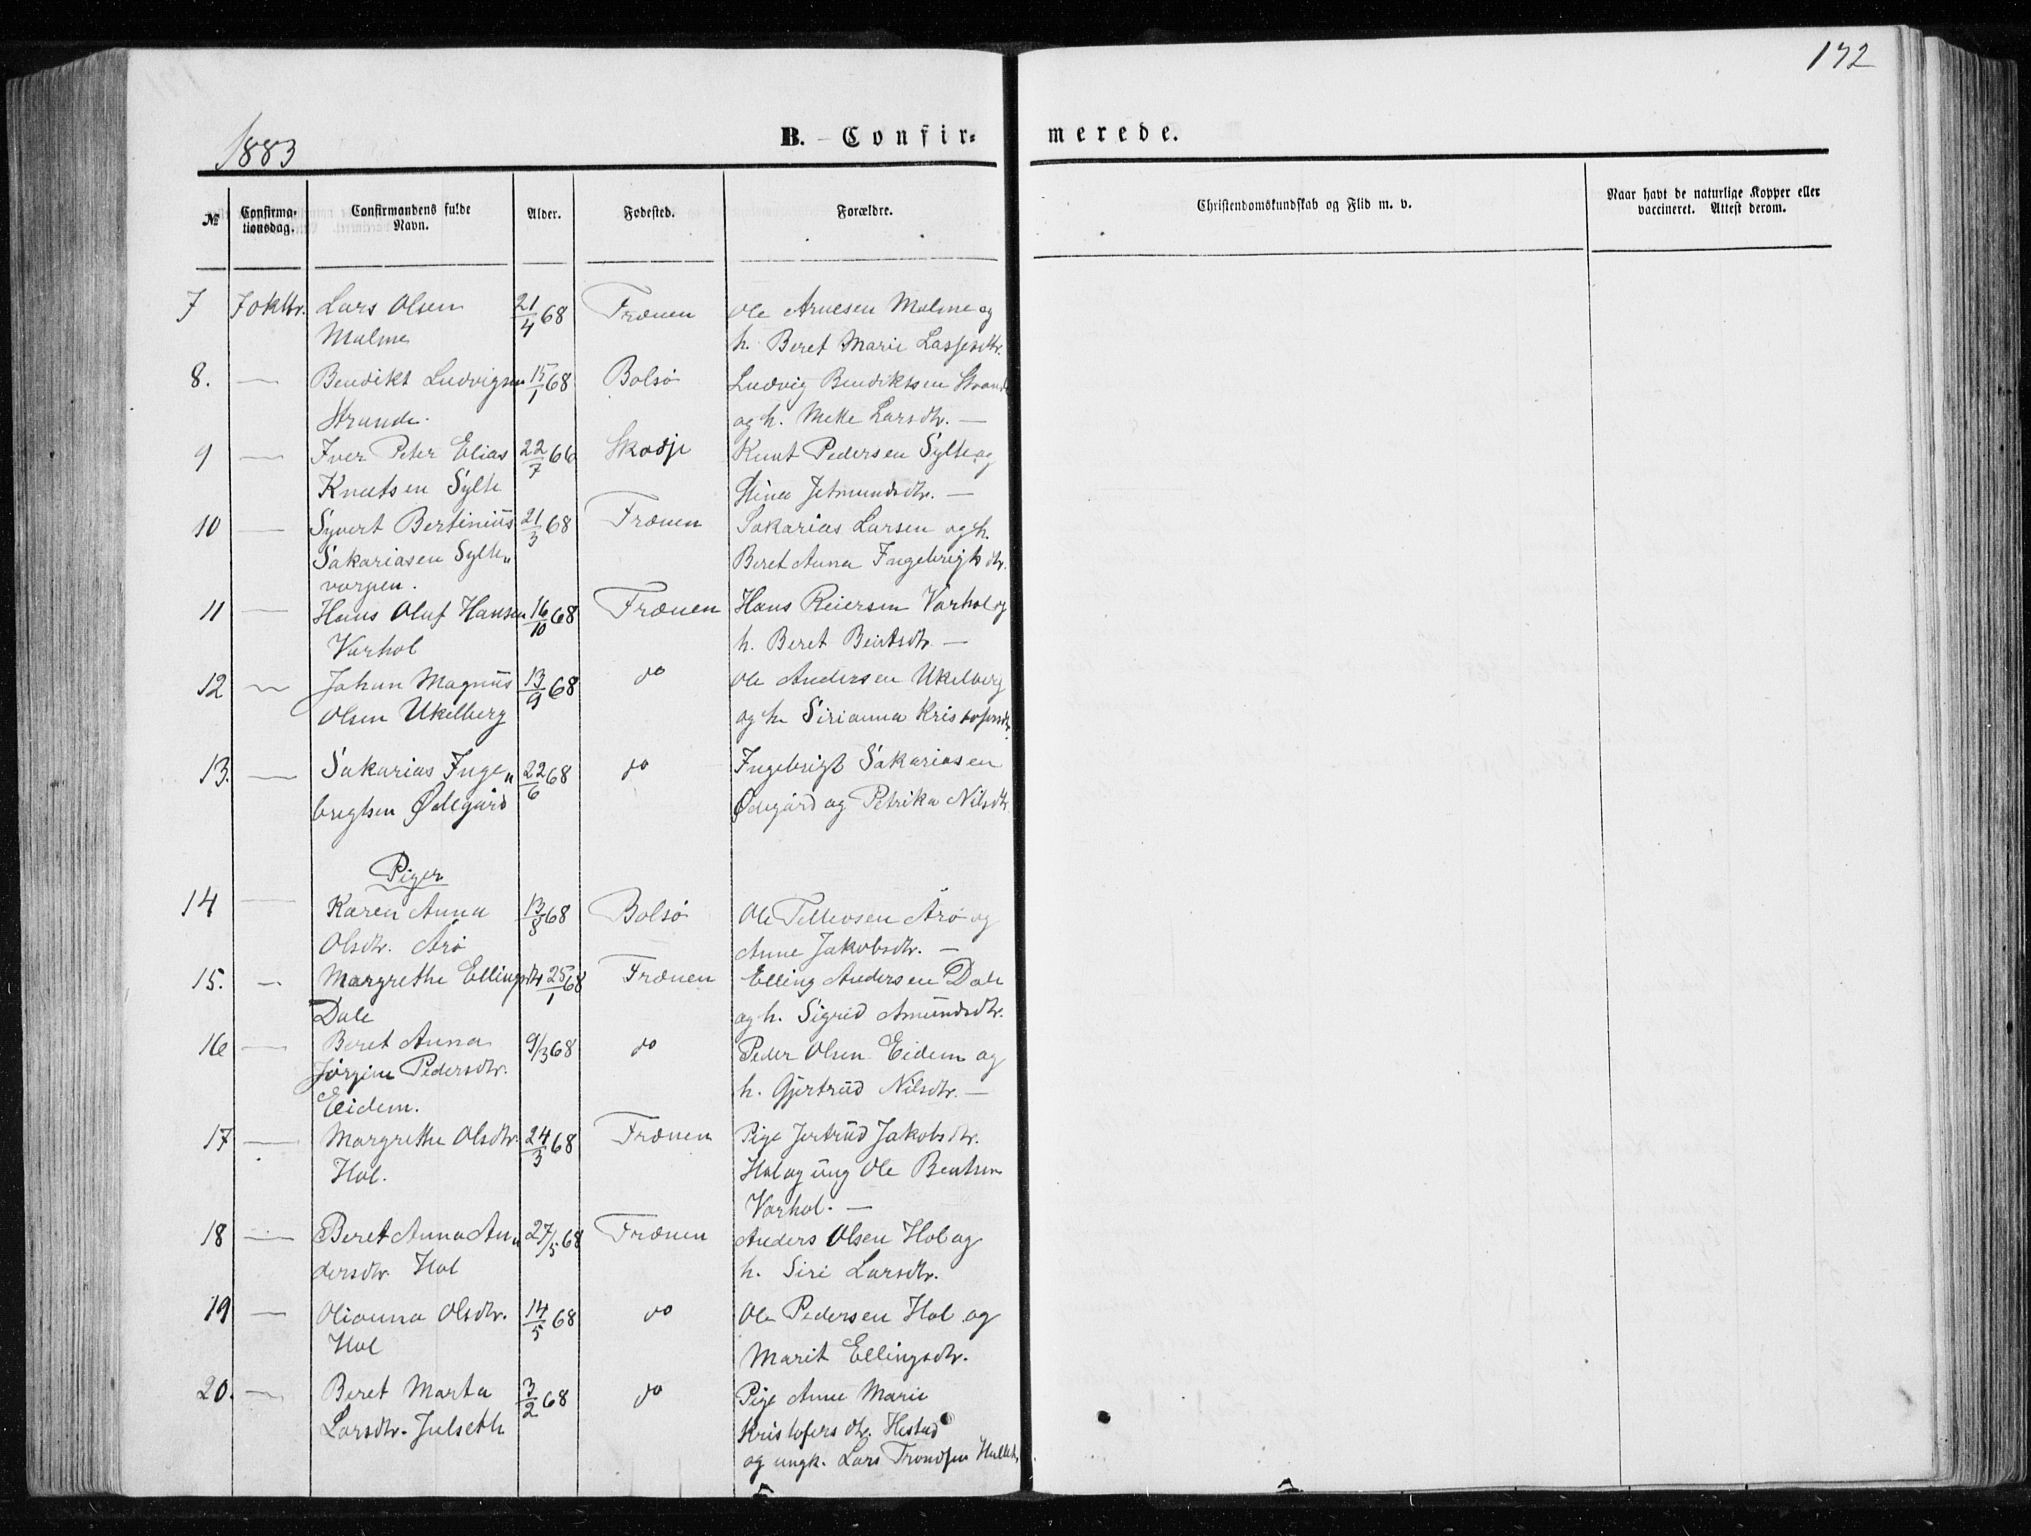 172
1883
B. Confirmerede.
№ Confirmationsdag. Confirmandens fulde Navn. Alder. Fødested. Forældre. Christendomskundskab og Flid m. v. Naar havt de naturlige Kopper eller vaccineret. Attest derom.
7 7 oktbr. Lars Olsen 21/4 68 Frænen Ole Arnesen Malme og
Malme h. Beret Marie Lassesdtr.
8. — Bendikt Ludvigsen 15/1 68 Bolsø Ludvig Bendiktsen Strande
Strande. og h. Mette Larsdtr. —
9 — Iver Peter Elias 22/7 66 Skodje Knut Pedersen Sylte og
Knutsen Sylte Stina Jetmundsdtr. —
10 — Syvert Bertinius 21/3 68 Frænen Sakarias Larsen og h.
Sakariasen Sylte„ Beret Anna Ingebrigtsdtr.
vorpen.
11 — Hans Oluf Hansen 16/10 68 Frænen Hans Reiersen Varhol og
Varhol h. Beret Bentsdtr. —
12 — Johan Magnus 13/9 68 do Ole Andersen Ukelberg
Olsen Ukelberg og h. Sirianna Kristofersdtr.
13. — Sakarias Inge„ 22/6 68 do Ingebrigt Sakariasen
brigtsen Ødegård Ødegård og Petrika Nilsdtr.
Piger
14 — Karen Anna 13/8 68 Bolsø Ole Tellevsen Årø og
Olsdtr. Årø Anne Jakobsdtr. —
15. — Margrethe Ellingsdtr 25/1 68 Frænen Elling Andersen Dale
Dale og h. Sigrid Amundsdtr.
16 — Beret Anna 9/3 68 do Peder Olsen Eidem og
Jørgine Pedersdtr. h. Gjertrud Nilsdtr. —
Eidem.
17 — Margrethe Olsdtr. 24/3 68 Frænen Pige Jertrud Jakobsdtr.
Hol. Hol og ung Ole Bentsen
Varhol. —
18 — Beret Anna An„ 27/5 68 Frænen Anders Olsen Hol og
dersdtr. Hol h. Siri Larsdtr.
19 — Olianna Olsdtr. 14/5 68 do Ole Pedersen Hol og
Hol Marit Ellingsdtr.
20. — Beret Marta 3/2 68 do Pige Anne Marie
Larsdtr. Julseth Kristofersdtr. Hestad
og ungk. Lars Trondsen